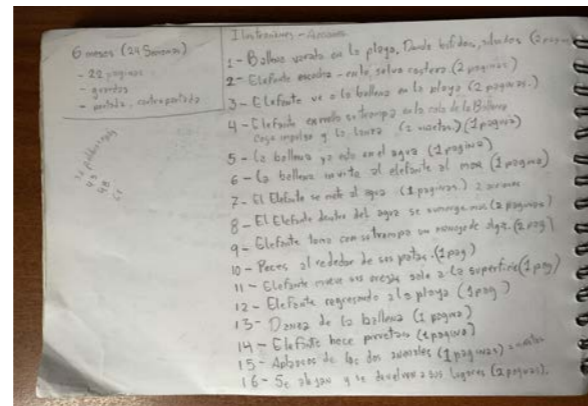 6 meses (24 Semanas)
- 22 paginas
- guardas
- portada, contraportada
Ilustraciones - Acciones
1 - Ballena varada en la playa, Dando bufidos, (2
2 - Elefante escucha - en la selva costera. (2 paginas)
3 - Elefante ve a la ballena en la playa (2 paginas.)
4 - Elefante su trompa en la cola de la Ballena
Coge impulso y la lanza (2 viñetas) (1 pagina)
5 - La ballena ya esta en el agua (1 pagina)
6 - La ballena invita al elefante al mar (1 pagina)
7 - El Elefante se mete al agua (1 paginas.) 2
8 - El Elefante dentro del agua se sumerge mas (2 paginas)
9 - Elefante toma con su trompa un manojo de algas. (2 pag)
10 - Peces alrededor de sus patas. (1 pag)
11 - Elefante mueve sus orejas sale a la superficie (1 pag)
12 - Elefante regresando a la playa (1 pag)
13 - Danza de la ballena (1 pagina)
14 - Elefante hace piruetas (1 pagina)
15 - Aplausos de los dos animales (1 paginas) 2 viñetas
16 - Se alejan y se devuelven a sus lugares (2 paginas).